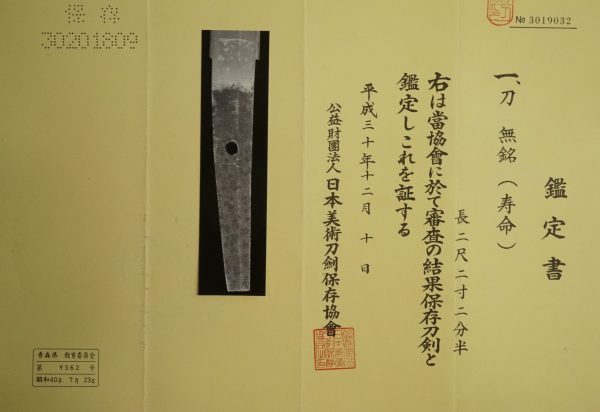 № 3019032
鑑定書
一、刀 無銘(寿命)
長二尺二寸二分半
右は當協會に於て審査の結果保存刀剣と
鑑定しこれを証する
平成三十年十二月十日
公益財團法人日本美術刀劍保存協會
保存
30201809
青森県 教育委員会
第 1362 号
昭和40年 7月 23日